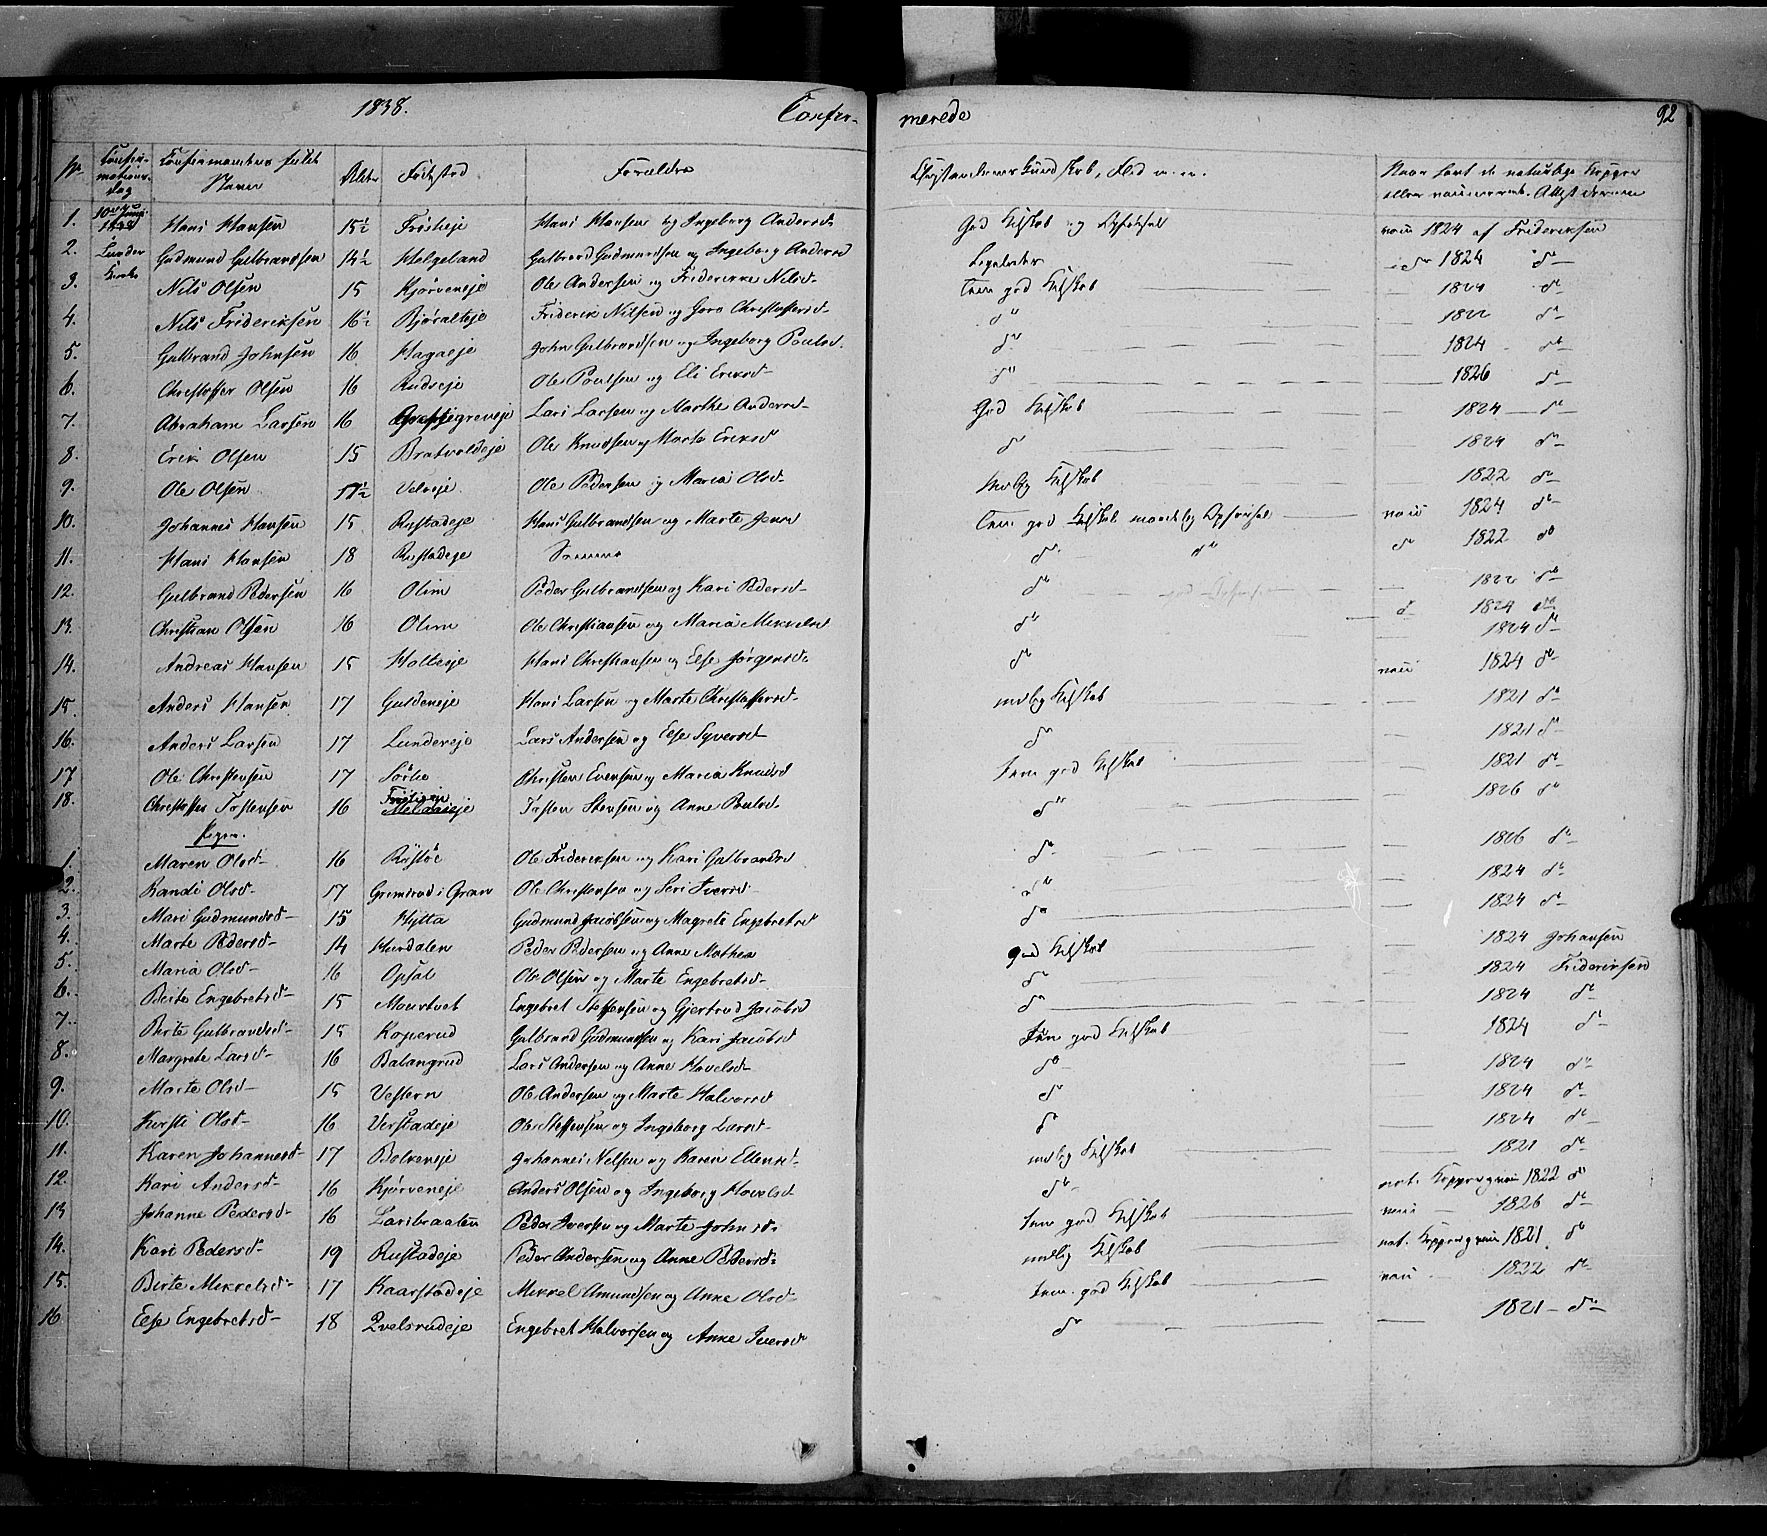 1838. Confir- merede 92
No Confir-mations-dag Confirmandens fulde Navn Alder Fødested Forældre Christendoms Kundskab, Flid m.m. Naar havt de naturlige Kopper eller vaccineret. Attest derom
1. 10de Juni 1838 Hans Hansen 15½ Hans Hansen og Ingeborg Andersd- God Kdskab og Opførsel vacc 1824 af Frideriksen
2. Lunder Gudmund Gulbrandsen 14½ Helgeland Gulbrand Gudmundsen og Ingeborg Andersd Ligeledes do 1824 do
3. Kirke Nils Olsen 15 Kjørveneje Ole Andersen og Friderikke Nilsd- Tem. god Kdskab 1824 do
4. Nils Frideriksen 16½ Bjøralteje Friderik Nilsen og Goro Christoffersd- do 1822 do
5. Gulbrand Johnsen 16 Hagaeje John Gulbrandsen og Ingeborg Poulsd. do 1824 do
6. Christoffer Olsen 16 Rudseje Ole Poulsen og Eli Eriksd- do 1826 do
7. Abraham Larsen 16 Lars Larsen og Marthe Andersd- God Kdskab 1824 do
8. Erik Olsen 15 Bratvoldeje Ole Knudsen og Marte Eriksd do 1824 do
9. Ole Olsen 17½ Velseje Ole Pedersen og Maria Olsd- mdlig Kdskab 1822 do
10. Johannes Hansen 15 Rustadeje Hans Gulbrandsen og Marte Jensd Tem. god Kdskab Opførsel vacc 1824 do
11. Hans Hansen 18 Rustadeje Samme do do do 1822 do
12. Gulbrand Pedersen 16 Olim Peder Gulbrandsen og Kari Pedersd- do 1822 do
13. Christian Olsen 16 Olim Ole Christiansen og Maria Mikkelsd do do 1824 do
1824 do
14. Andreas Hansen 15 Holteeje Hans Christiansen og Else Jørgensd- do vacc 1824 do
15. Anders Hansen 17 Guldeneje Hans Larsen og Marte Christoffersd- mdlig Kdskab 1821 do
16. Anders Larsen 17 Lundereje Lars Andersen og Else Syversd- do 1821 do
17 Ole Christensen 17 Sørlie Christen Evensen og Maria Knudsd Tem god Kdskab 1821 do
18. Christoffer Tostensen 16 Tosten Stensen og Anne Poulsd- do 1826 do
Piger.
1. Maren Olsd- 16 Rustøe Ole Frideriksen og Kari Gulbrandsd do 1826 do
2. Randi Olsd- 17 Grimsrud i Gran Ole Christensen og Siri Iversd- do 1824 do
3. Mari Gudmundsd- 15 Hytta Gudmund Jacobsen og Magrete Engebretsd do 1824 do
4. Marte Pedersd- 14 Hurdalen Peder Pedersen og Anne Mathea god Kdskab 1824 Johansen
5. Maria Olsd- 16 Opsal Ole Olsen og Marte Engebretsd- do 1824 Frideriksen
6. Birte Engebretsd- 15 Maurtvet Engebret Steffensen og Gjertrud Jacobsd do 1824 do
7. Birte Gulbrandsd- 15 Koperud Gulbrand Gudmundsen og Kari Jacobsd Tem god Kdskab 1824 do
8. Margrete Larsd- 16 Balangrud Lars Andersen og Anne Hovelsd- do 1824 do
9. Marte Olsd- 15 Vestern Ole Andersen og Marte Halvorsd do 1824 do
10. Kirsti Olsd- 16 Verstadeje Ole Steffensen og Ingeborg Larsd- do 1824 do
11. Karen Johannesd- 17 Bolkeneje Johannes Nilsen og Karen Ellensd- mdlig Kdskab 1821 do
12. Kari Andersd- 16 Kjørveneje Anders Olsen og Ingeborg Hovelsd do nat. Kopper 1822 do
13 Johanne Pedersd- 16 Laribraaten Peder Iversen og Marte Johnsd- Tem god Kdskab vacc 1826 do
14. Kari Pedersd- 19 Rustadeje Peder Andersen og Anne Pedersd- mdlig Kdskab nat. Kopper 1821 do
15. Birte Mikkelsd- 17 Kaarstadeje Mikkel Amundsen og Anne Olsd- Tem. god Kdskab vacc 1822 do
16 Else Engebretsd- 18 Qvelsrudeje Engebret Halvorsen og Anne Iversd do 1821 do